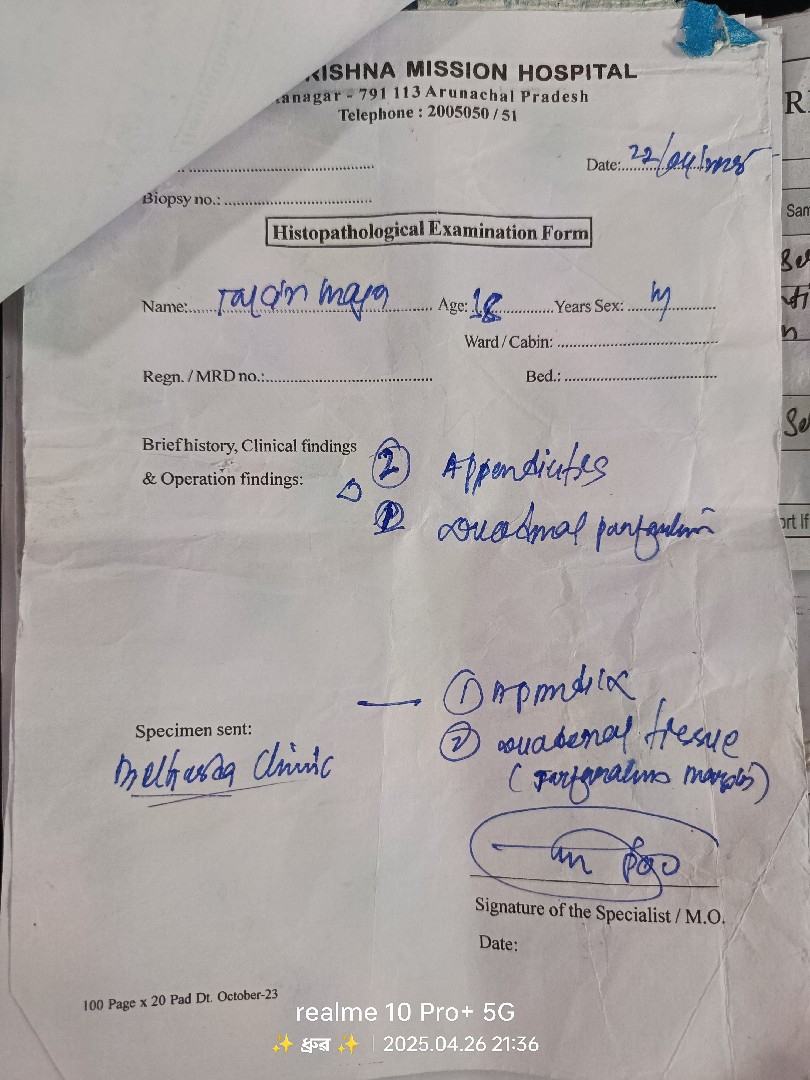 RISHNA MISSION HOSPITAL
anagar - 791 113 Arunachal Pradesh
Telephone : 2005050 / 51
Date: 22/04/
Biopsy no.:
Histopathological Examination Form
Name: Age: 18 Years Sex: M
Ward / Cabin:
Regn. / MRD no.: Bed.:
Brief history, Clinical findings
& Operation findings:
② Appendicitis
① duodenal
① Appendix
Specimen sent:
② duodenal tissue
Clinic
Signature of the Specialist / M.O.
Date:
100 Page x 20 Pad Dt. October-23
realme 10 Pro+ 5G
✨ ধ্রুব ✨ | 2025.04.26 21:36